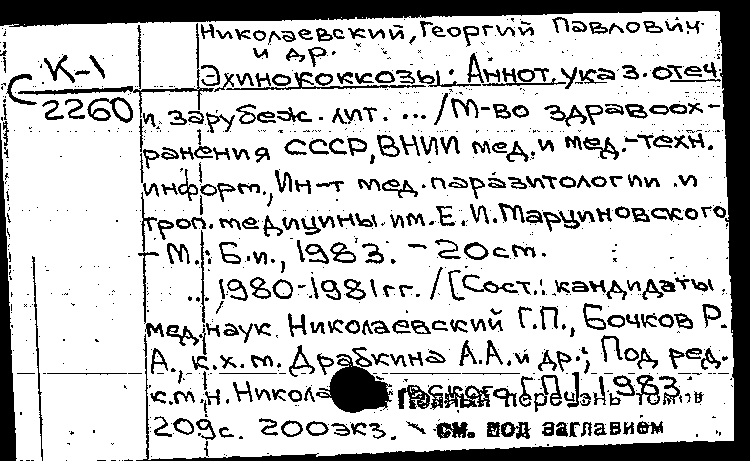 Николаевский, Георгий Павлович
и др.
К-1
2260
Эхинококкозы: Аннот. указ. отеч.
и зарубеж. лит. ... /М-во здравоох-
ранения СССР, ВНИИ мед. и мед.-техн.
информ., Ин-т мед. паразитологии и
троп. медицины им. Е.И. Марциновского
- М.: Б.и., 1983. - 20см.
... 1980-1981гг. / [Сост.: кандидаты
мед. наук Николаевский Г.П., Бочков Р.
А., к.х.н. Драбкина А.А. и др.; Под ред.
к.м.н. Николаевского Г.П.] 1983.
Полный перечень томов
209с. 200экз.
см. под заглавием